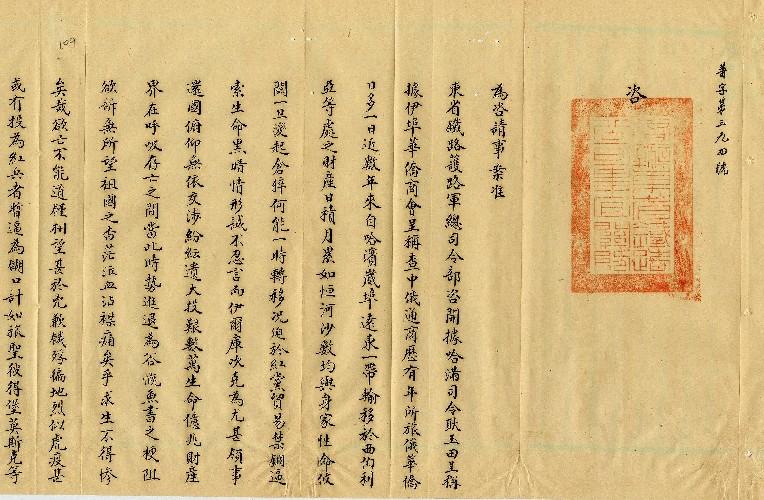 普字第三九四號
咨
為咨請事案准
東省鐵路護路軍總司令部咨開據哈滿司令耿玉田呈稱
據伊埠華僑商會呈稱查中俄通商歷有年所旅俄華僑
日多一日近數年來自哈濱崴埠遠東一帶輸移於西伯利
亞等處之財產日積月累如恒河沙數均與身家性命攸
關一旦變起倉猝何能一時轉移況迫於紅黨貿易禁錮逼
索生命黑暗情形誠不忍言而伊爾庫次克為尤甚領事
還國俯仰無依交涉紛紜遺大投艱數萬生命億兆財產
界在呼吸存亡之間當此時勢進退為谷嘅魚書之梗阻
欲訴無所望祖國之杳茫泣血沾襟痛矣乎求生不得慘
矣哉欲亡不能道殣相望甚於荒歉餓殍徧地烈似虎疫甚
或有投為紅兵者暫逼為餬口計如旅聖彼得堡莫斯克等
109